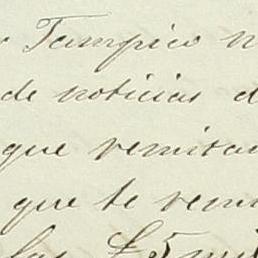 Tampico
de noticias
que remitan
que te rem
las £5 mil